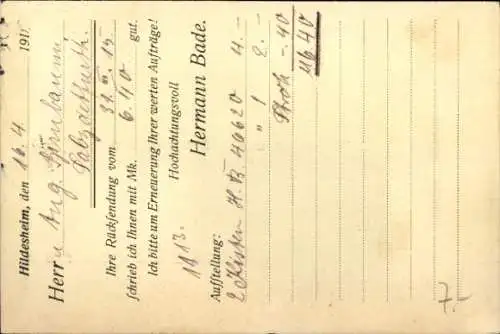 Hildesheim, den 16.4 191
Herrn Aug. Birnbaum
Salzdetfurth.
Ihre Rücksendung vom 31.III.15
schrieb ich Ihnen mit Mk. 6.40 gut.
Ich bitte um Erneuerung Ihrer werten Aufträge!
Hochachtungsvoll
Hermann Bade.
1813.
Aufstellung:
2 Kisten H.B 46620 4.-
" 1 2.-
Stroh -.40
M 6.40
7.-